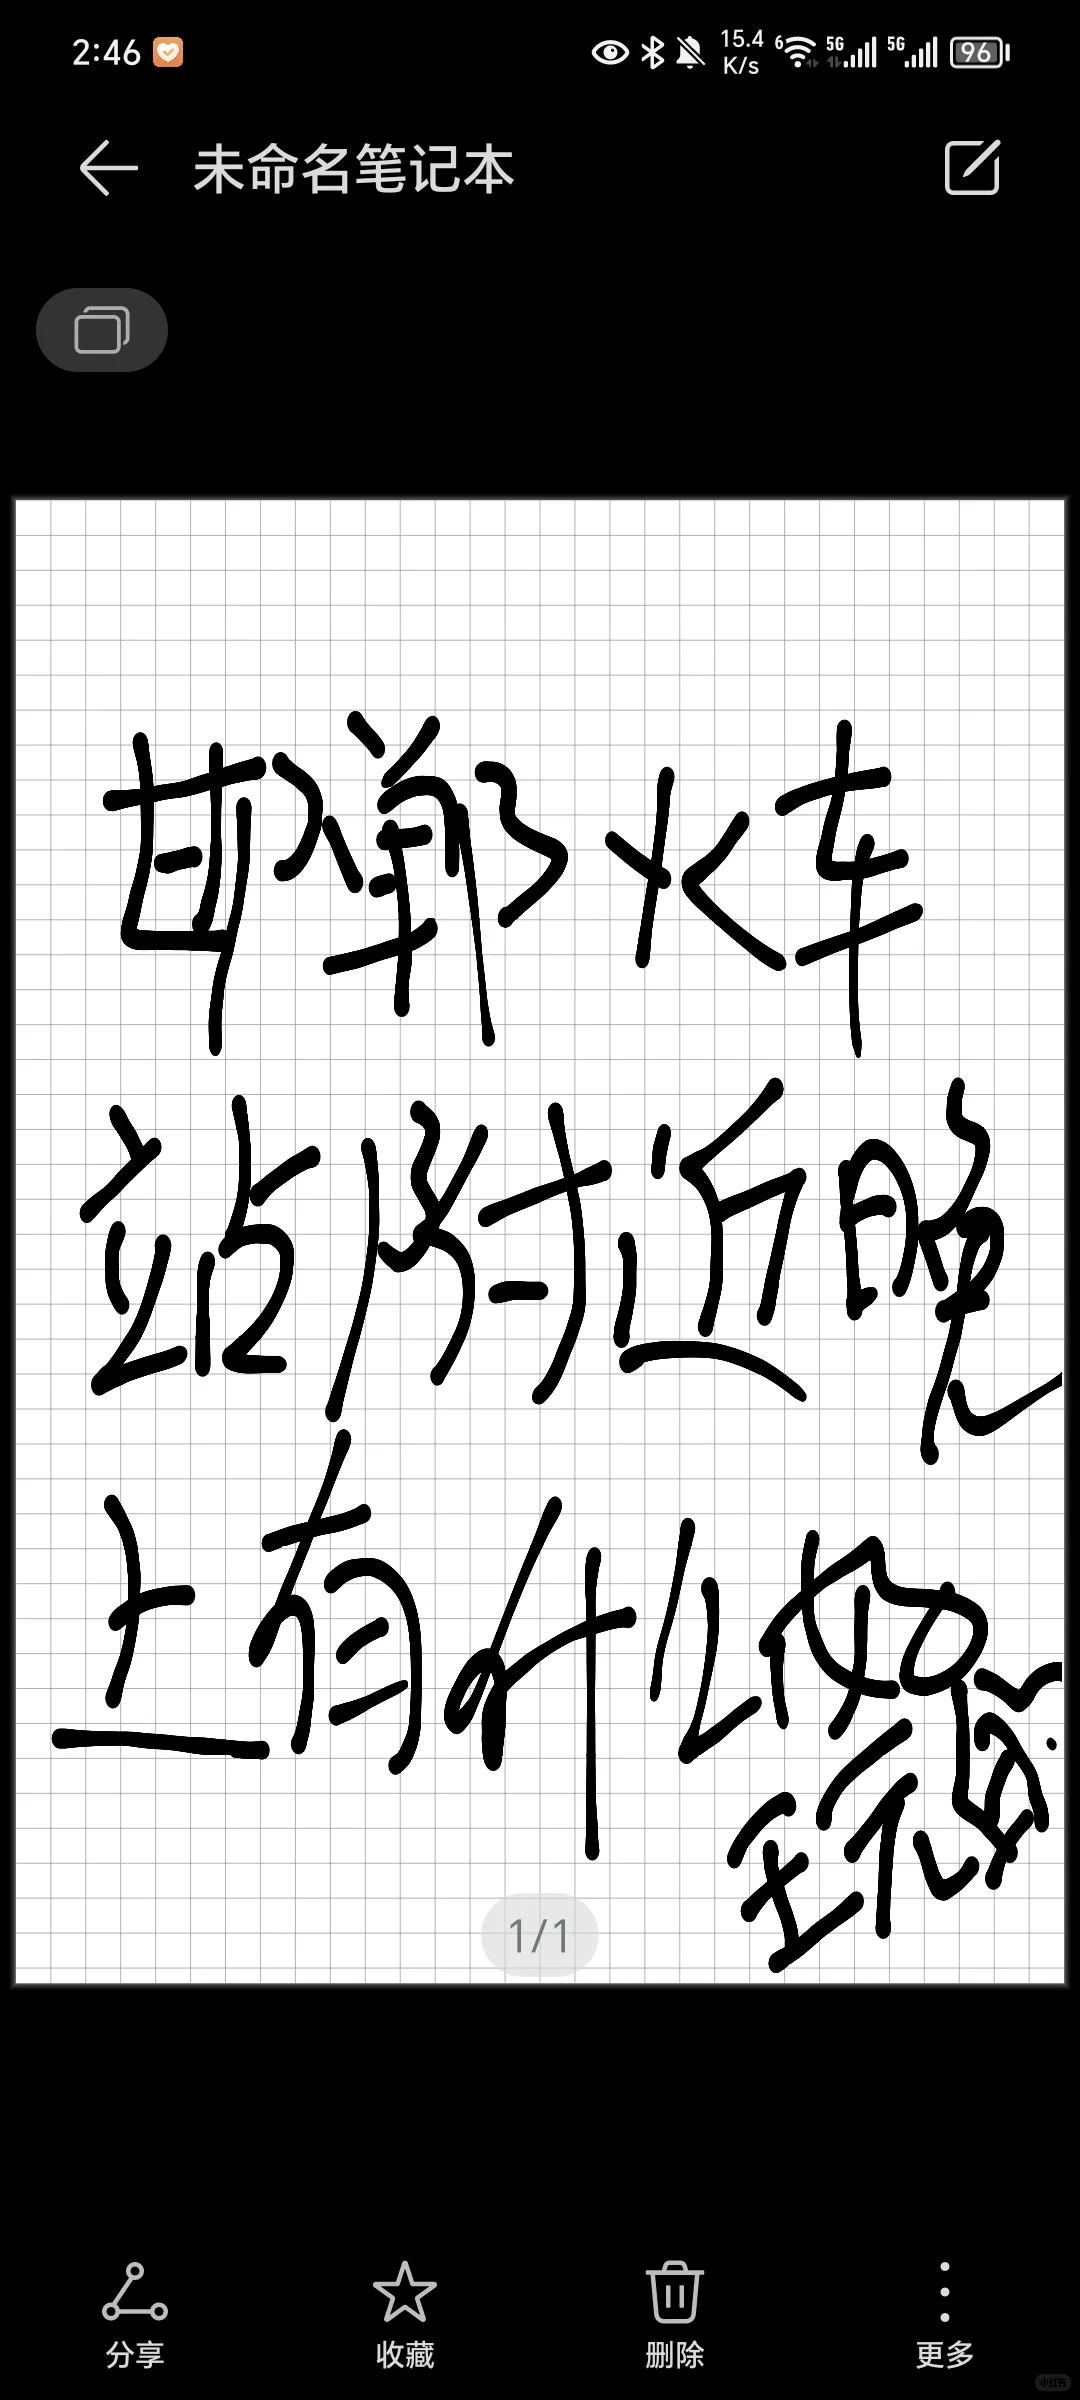 2:46 15.4 K/s 6 5G 5G 96
未命名笔记本
邯郸火车
站附近晚
上有什么好
玩的
1/1
分享 收藏 删除 更多
小红书